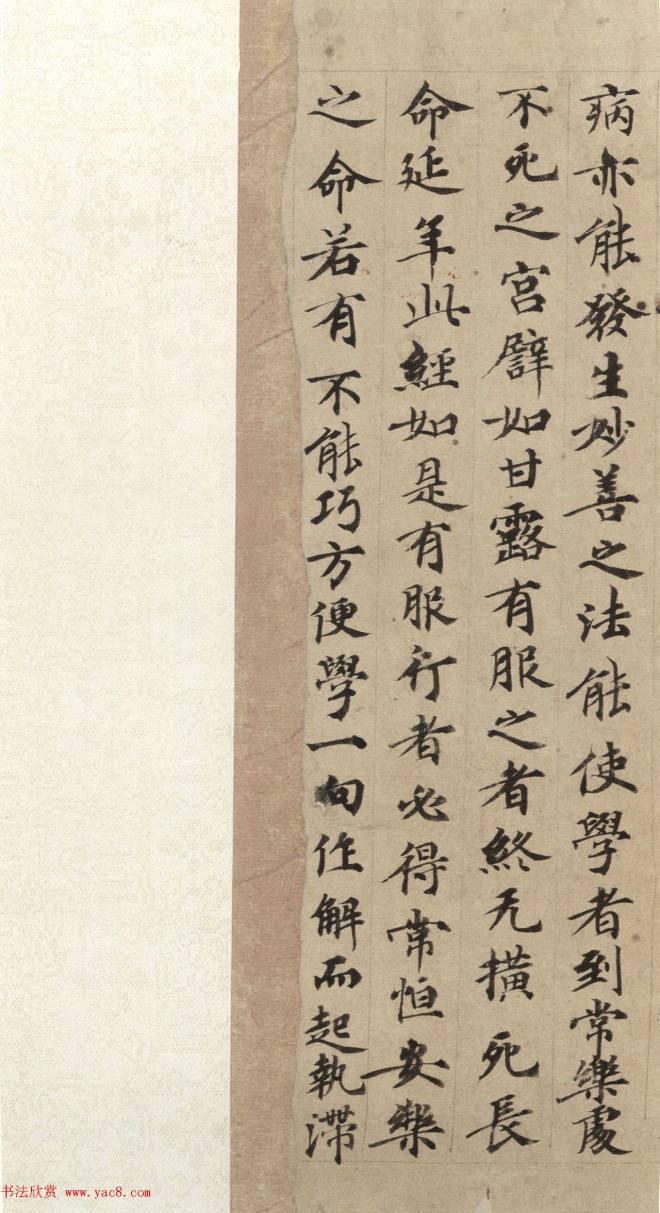 病亦能發生妙善之法能使學者到常樂處
不死之宮譬如甘露有服之者終无橫死長
命延年此經如是有服行者必得常恒安樂
之命若有不能巧方便學一句作解而起執滯
书法欣赏 www.yac8.com